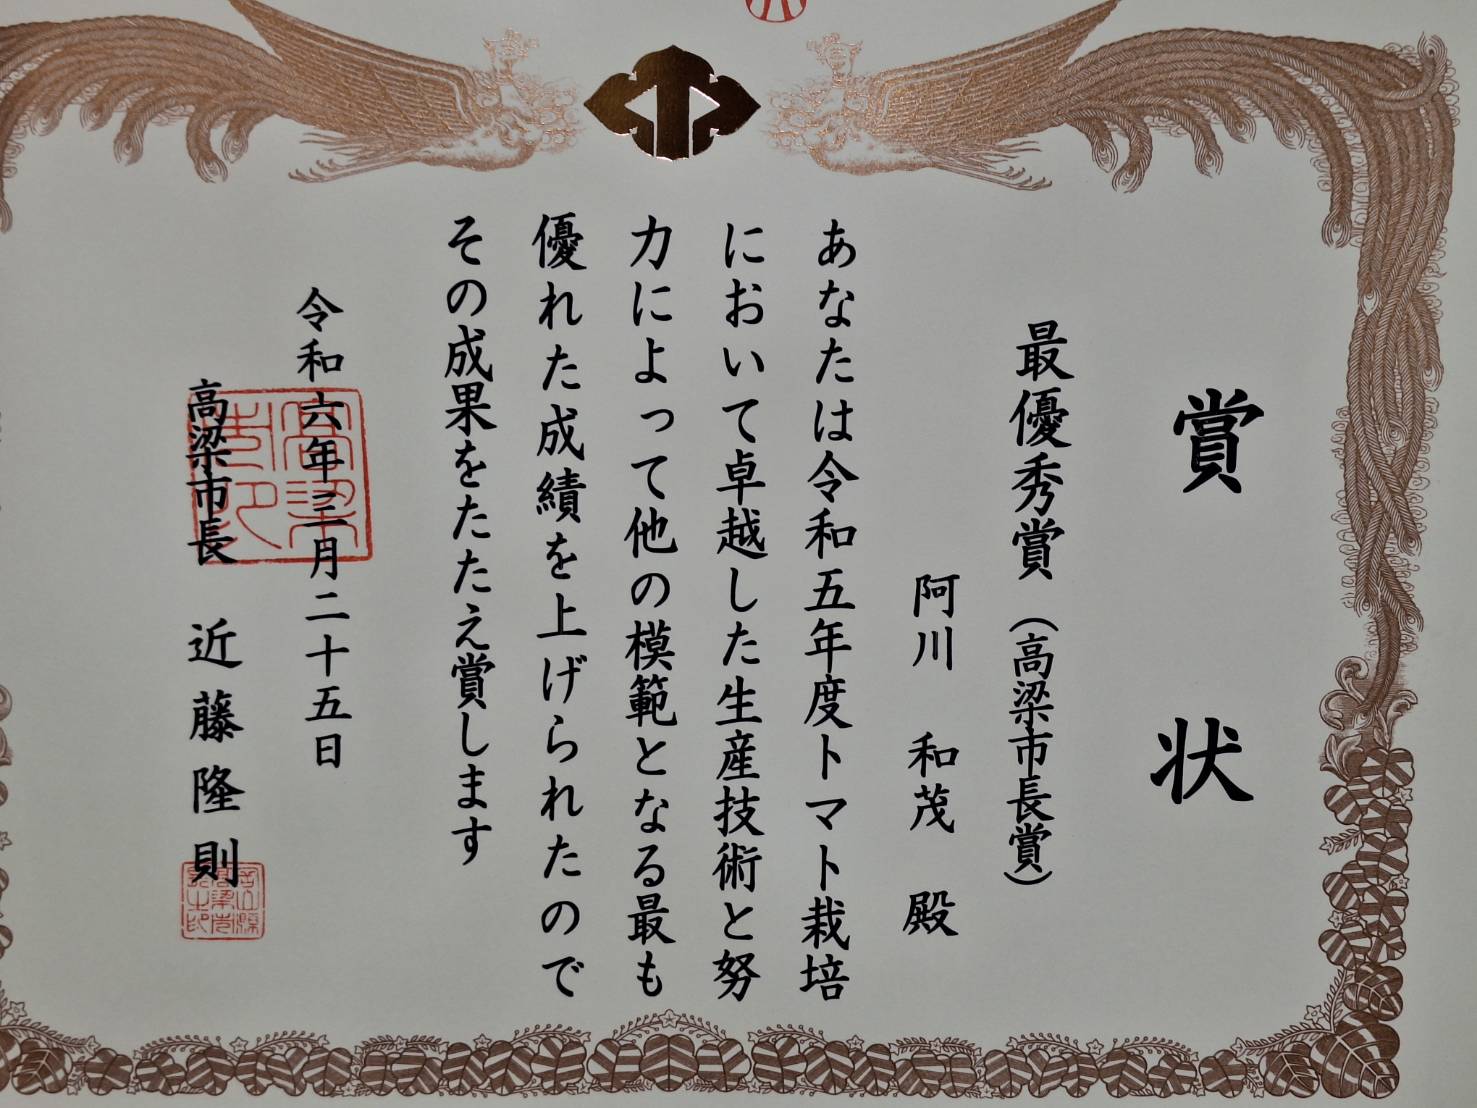 賞状
最優秀賞（高梁市長賞）
阿川 和茂 殿
あなたは令和五年度トマト栽培
において卓越した生産技術と努
力によって他の模範となる最も
優れた成績を上げられたので
その成果をたたえ賞します
令和六年三月二十五日
高梁市長 近藤隆則